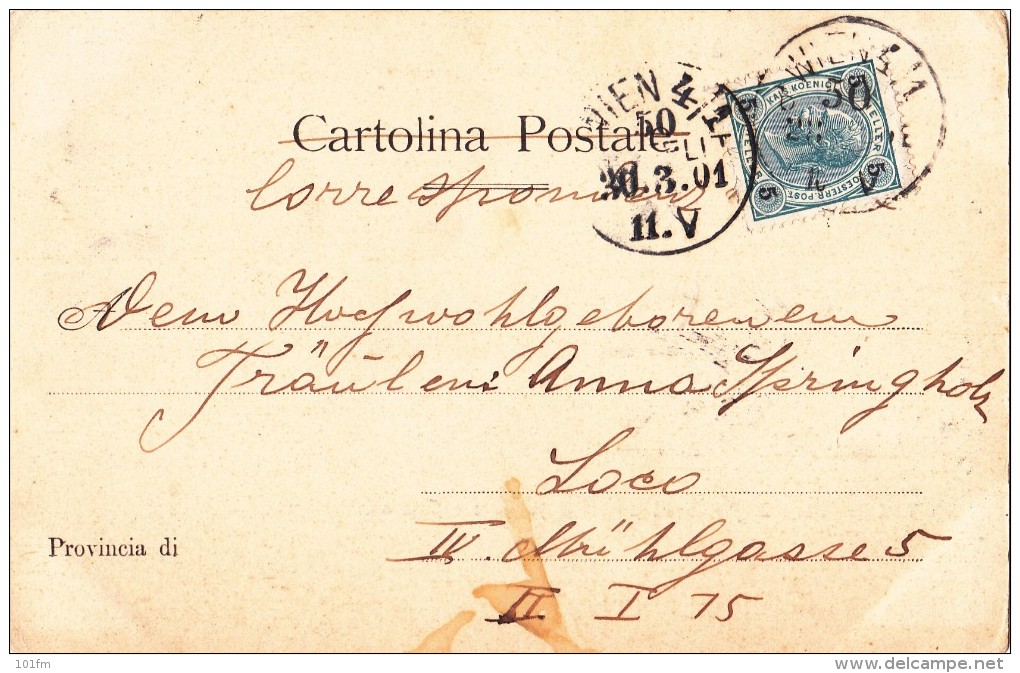 Cartolina Postale
Correspondenz
WIEN 4/1
50
30.3.01
11.V
WIEN 4/1
50
KAIS. KOENIGL.
HELLER
OESTERR. POST
5
5
5
5
Dem Hochwohlgeborenem
Fräulein Anna Springholz
Loco
IV. Mühlgasse 5
II I 75
Provincia di
101fm
www.delcampe.net